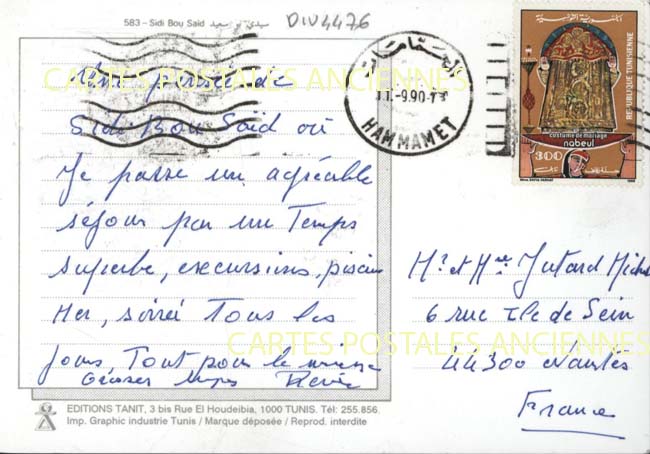 583 - Sidi Bou Said سيدي بو سعيد
DIV4476
Une pensée de
Sidi Bou Said où
Je passe un agréable
séjour par un Temps
superbe, excursions, piscine
Mer, soirée Tous les
jours, Tout pour le mieux
Renée
الحمامات
11.-9.90-13
HAMMAMET
الجمهورية التونسية
REPUBLIQUE TUNISIENNE
costume de mariage
nabeul
300
Mr et Mme Jutard Michel
6 rue Ile de Sein
44300 Nantes
France
EDITIONS TANIT, 3 bis Rue El Houdeibia, 1000 TUNIS. Tél: 255.856.
Imp. Graphic industrie Tunis / Marque déposée / Reprod. interdite
CARTES POSTALES ANCIENNES
CARTES POSTALES ANCIENNES